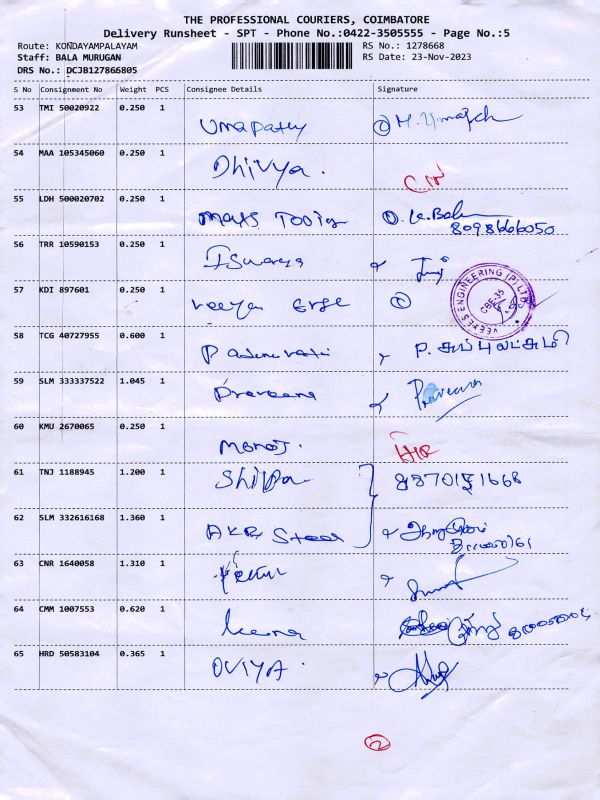 THE PROFESSIONAL COURIERS, COIMBATORE
Delivery Runsheet - SPT - Phone No.:0422-3505555 - Page No.:5
Route: KONDAYAMPALAYAM RS No.: 1278668
Staff: BALA MURUGAN RS Date: 23-Nov-2023
DRS No.: DCJB127866805
S No Consignment No Weight PCS Consignee Details Signature
53 TMI 50020922 0.250 1
Umapathy
54 MAA 105345060 0.250 1
Dhivya.
55 LDH 500020702 0.250 1
Tools
8098666050
56 TRR 10590153 0.250 1
Iswarya
57 KDI 897601 0.250 1
VEEYES ENGINEERING (P) LTD
CBE-35
58 TCG 40727955 0.600 1
P. சுப்புலட்சுமி
59 SLM 333337522 1.045 1
Praveena Praveena
60 KMU 2670065 0.250 1
Manoj.
61 TNJ 1188945 1.200 1
Shilpa
62 SLM 332616168 1.360 1
AKR Steel
63 CNR 1640058 1.310 1
64 CMM 1007553 0.620 1
Leena
65 HRD 50583104 0.365 1
OVIYA.
2